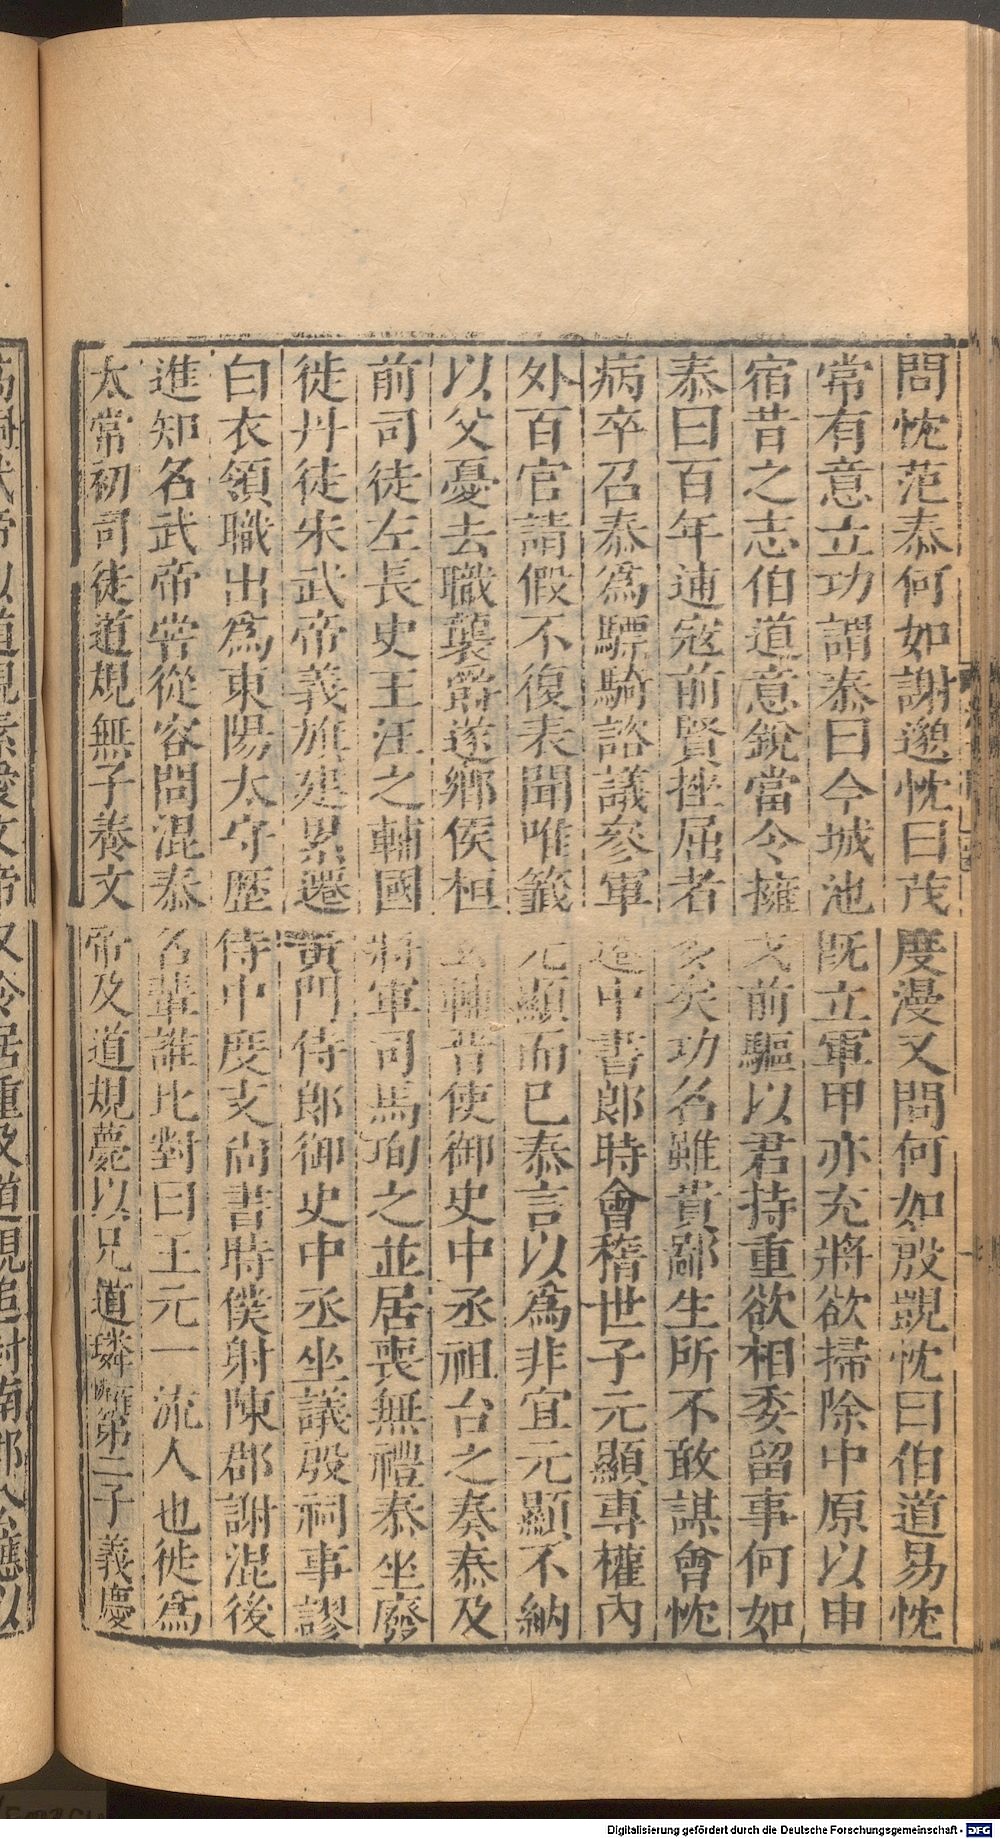 問忱范泰何如謝邈忱曰茂度漫又問何如殷覬忱曰伯道易忱
常有意立功謂泰曰今城池既立軍甲亦充將欲掃除中原以申
宿昔之志伯道意銳當令擁戈前驅以君持重欲相委留事何如
泰曰百年逋寇前賢挫屈者多矣功名雖貴鄙生所不敢謀會忱
病卒召泰爲驃騎諮議參軍遷中書郎時會稽世子元顯專權內
外百官請假不復表聞唯籤元顯而已泰言以爲非宜元顯不納
以父憂去職襲爵遂鄉侯桓玄輔晉使御史中丞祖台之奏泰及
前司徒左長史王汪之輔國將軍司馬珣之並居喪無禮泰坐廢
徙丹徒宋武帝義旗建累遷黃門侍郎御史中丞坐議殷祠事謬
白衣領職出爲東陽太守歷侍中度支尚書時僕射陳郡謝混後
進知名武帝嘗從容問混泰名輩誰比對曰王元一流人也徙爲
太常初司徒道規無子養文帝及道規薨以兄道璘第二子義慶
Digitalisierung gefördert durch die Deutsche Forschungsgemeinschaft - DFG